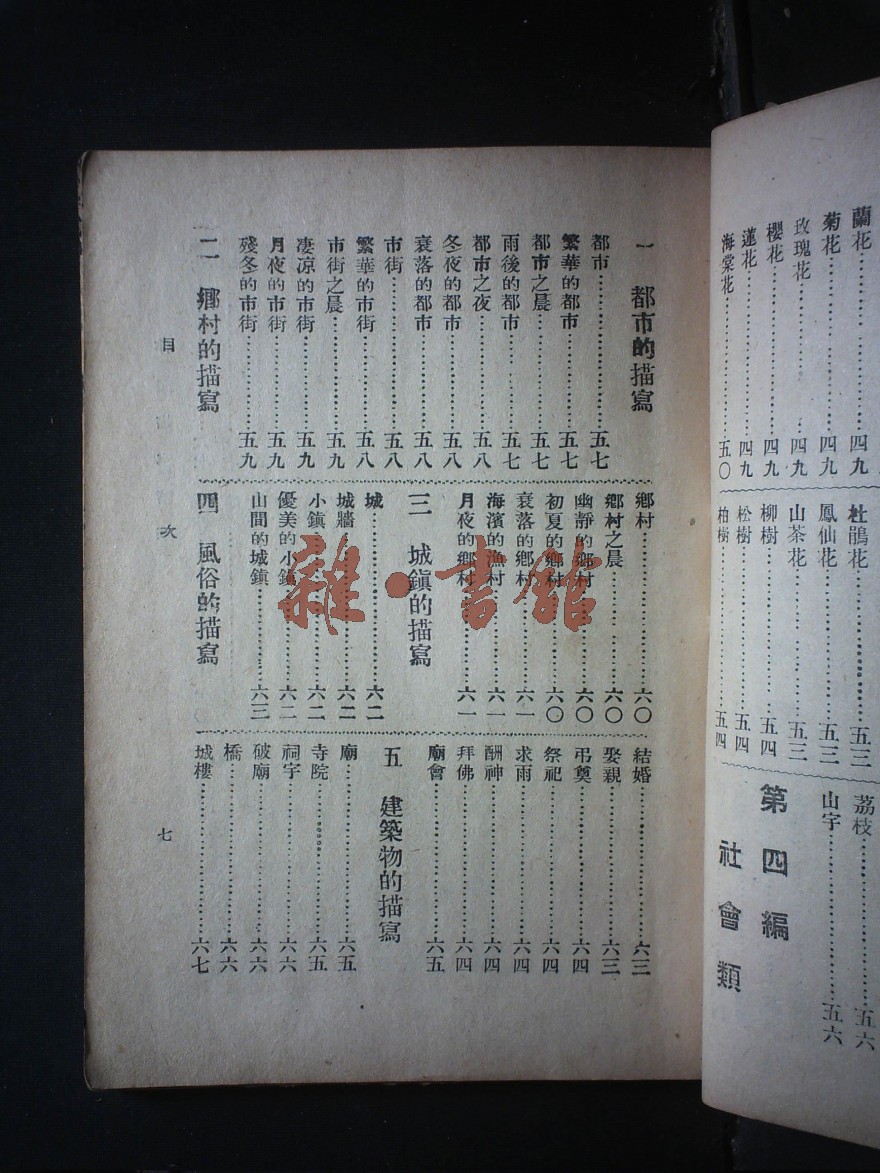 蘭花
菊花……四九
玫瑰花……四九
櫻花……四九
蓮花……四九
海棠花……五〇
杜鵑花……五三
鳳仙花……五三
山茶花……五三
柳樹……五四
松樹……五四
柏樹……五四
荔枝……五六
山宇……五六
第四編
社會類
一 都市的描寫
都市……五七
繁華的都市……五七
都市之晨……五七
雨後的都市……五七
都市之夜……五八
冬夜的都市……五八
衰落的都市……五八
市街……五八
繁華的市街……五八
市街之晨……五九
凄凉的市街……五九
月夜的市街……五九
殘冬的市街……五九
二 鄉村的描寫
鄉村……六〇
鄉村之晨……六〇
幽靜的鄉村……六〇
初夏的鄉村……六〇
衰落的鄉村……六一
海濱的漁村……六一
月夜的鄉村……六一
三 城鎮的描寫
城……六二
城牆……六二
小鎮……六二
優美的小鎮……六二
山間的城鎮……六三
四 風俗的描寫
結婚……六三
娶親……六三
弔奠……六四
祭祀……六四
求雨……六四
酬神……六四
拜佛……六四
廟會……六五
五 建築物的描寫
廟……六五
寺院……六五
祠宇……六六
破廟……六六
橋……六六
城樓……六七
目 次
七
雜·書館